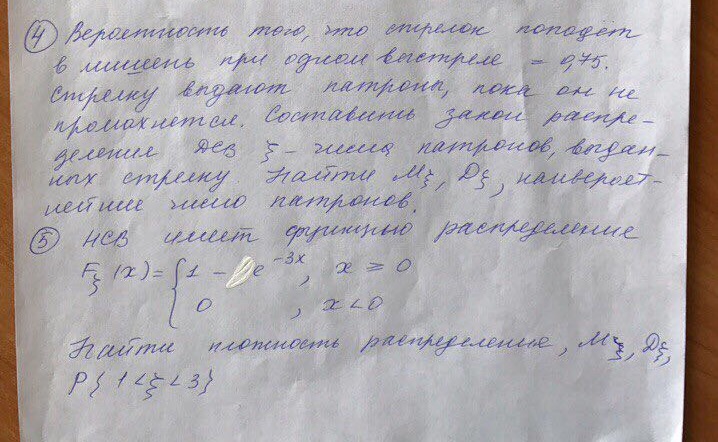 ④ Вероятность того, что стрелок попадёт
в мишень при одном выстреле = 0,75.
Стрелку выдают патроны, пока он не
промахнется. Составить закон распре-
деления ДСВ ξ – числа патронов, выдан-
ных стрелку. Найти Mξ, Dξ, наивероят-
нейшее число патронов.
⑤ НСВ имеет функцию распределения
Fξ(x) = { 1 - e^{-3x}, x ≥ 0
0, x < 0
Найти плотность распределения, Mξ, Dξ,
P{1<ξ<3}